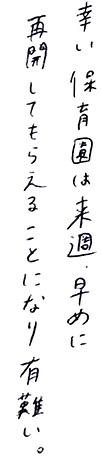 幸い保育園は来週、早めに
再開してもらえることになり有難い。